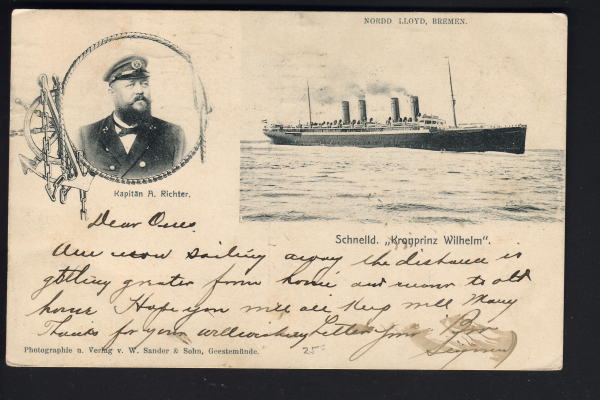 NORDD LLOYD, BREMEN.
Kapitän A. Richter.
Schnelld. „Kronprinz Wilhelm".
Dear Ones
Am now sailing away the distance is
getting greater from home and nearer to old
home Hope you will all keep well Many
Thanks for your Letter Your Bro
Photographie u. Verlag v. W. Sander & Sohn, Geestemünde.
25